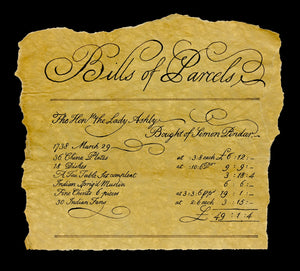 Bills of Parcels
The Honble the Lady Ashly
Bought of Simon Pindar
1738 March 29
36 China Plates at 3:8 each £ 6 : 12 : -
18 Dishes at 10:6 Do 9 : 9 : -
A Tea Table Set compleat 3 : 18 : 4
Indian Sprig'd Muslin 6 : 6 : -
Fine Chints 6 pieces at 3:3:6 pr 19 : 1 : -
30 Indian Fans at 2:6 each 3 : 15 : -
£ 49 : 1 : 4